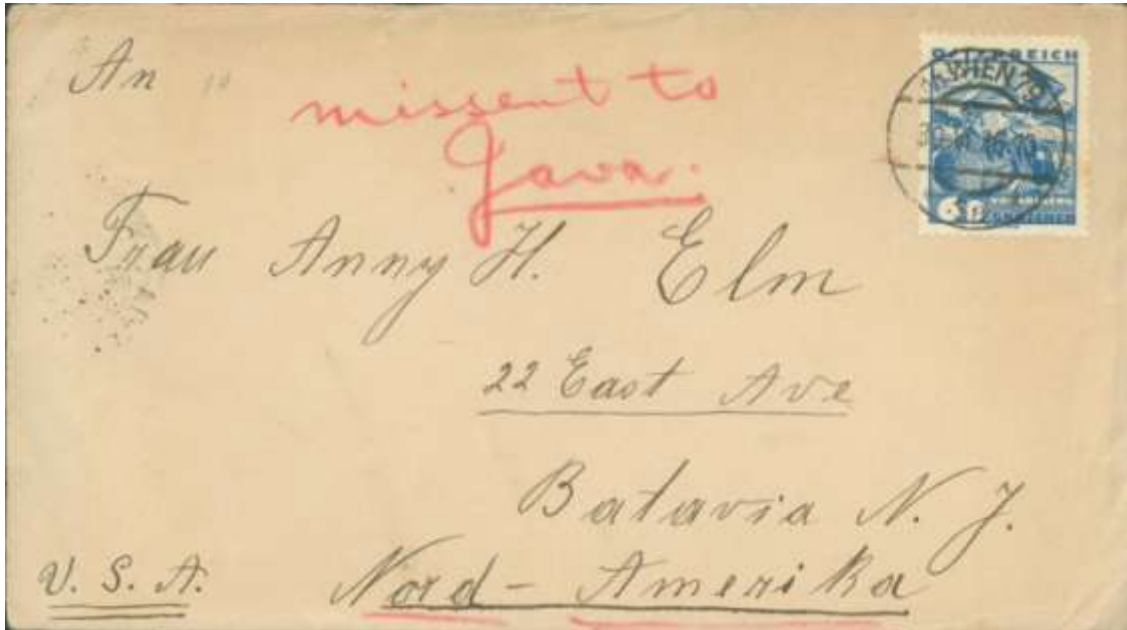 An
missent to
Java.
ÖSTERREICH
WIEN 19
60
GROSCHEN
Frau Anny H. Elm
22 East Ave
Batavia N. J.
U. S. A.
Nord-Amerika